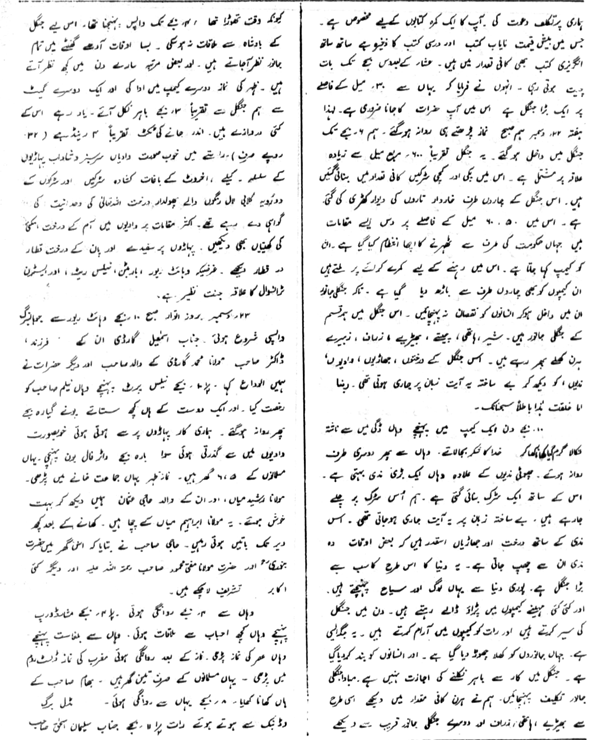 ہماری پرتکلف دعوت کی۔ آپ کا ایک کمرہ کتابوں کےلیے مخصوص ہے۔
جس میں بیش قیمت نایاب کتب اور درسی کتب کا ذخیرہ ہے ساتھ ساتھ
انگریزی کتب بھی کافی تعداد میں ہیں۔ عشاء کے بعد دس بجے تک بات
چیت ہوتی رہی۔ انہوں نے فرمایا کہ یہاں سے ۳۰ میل کے فاصلے
پر ایک بڑا جنگل ہے اس میں آپ حضرات کا جانا ضروری ہے۔ لہذا
ہفتہ ۲۲ دسمبر ہم صبح نماز پڑھتے ہی روانہ ہوگئے۔ ہم ۶ بجے تک
جنگل میں داخل ہو گئے۔ یہ جنگل تقریباً ۶۰۰ مربع میل سے زیادہ
علاقہ پر مشتمل ہے۔ اس میں پکی اور کچی سڑکیں کافی تعداد میں بنائی گئیں
ہیں۔ اس جنگل کے چاروں طرف خاردار تاروں کی دیوار کھڑی کی گئی
ہے۔ اس میں ۵۰، ۶۰ میل کے فاصلے پر دس ایسے مقامات
ہیں جہاں حکومت کی طرف سے ٹھہرنے کا اچھا انتظام کیا گیا ہے۔ ان
کو کیمپ کہا جاتا ہے۔ اس میں رہنے کے لیے کمرے کرائے پر ملتے ہیں
ان کیمپوں کو بھی چاروں طرف سے باڑھ دیا گیا ہے۔ تاکہ جنگلی جانور
ان میں داخل ہوکر انسانوں کو نقصان نہ پہنچائیں۔ اس جنگل میں ہر قسم
کے جنگلی جانور ہیں۔ شیر، ہاتھی، چیتے، بھیڑیے، زراف، زیبرے
ہرن کھلے پھر رہے ہیں۔ اس جنگل کے درختوں، جھاڑیوں، وادیوں
ندیوں، کو دیکھ کر بے ساختہ یہ آیت زبان پر جاری ہوتی تھی۔ ربنا
ما خلقت ہذا باطلاً سبحانک۔
۱۰ بجے دن ایک کیمپ میں پہنچے وہاں ڈگی میں سے ناشتہ
نکالا گرم کیا کھا کر خدا کا شکر بجا لائے۔ وہاں سے پھر دوسری طرف
روانہ ہوئے۔ چھوٹی ندیوں کے علاوہ وہاں ایک بڑی ندی بہتی ہے۔
اس کے ساتھ ایک سڑک بنائی گئی ہے۔ ہم اُس سڑک پر چلے
جا رہے ہیں، بے ساختہ زبان پر یہ آیت جاری ہو جاتی تھی۔ اس
ندی کے ساتھ درخت اور جھاڑیاں اسقدر ہیں کہ بعض اوقات وہ
ندی ان سے چھپ جاتی ہے۔ یہ دنیا کا اس طرح کا سب سے
بڑا جنگل ہے۔ پوری دنیا سے یہاں لوگ اور سیاح پہنچتے ہیں۔
اور کئی کئی مہینے کیمپوں میں پڑاؤ ڈالے رہتے ہیں۔ دن میں جنگل
کی سیر کرتے ہیں اور رات کو کیمپوں میں آرام کرتے ہیں۔ یہ جگہ ایسی
ہے۔ جہاں جانوروں کو کھلا چھوڑ دیا گیا ہے۔ اور انسانوں کو بند کردیا گیا
ہے۔ جنگل میں کار سے باہر نکلنے کی اجازت نہیں ہے۔ مبادا جنگلی
جانور تکلیف پہنچائیں۔ ہم نے ہرن کافی مقدار میں دیکھے اسی طرح
سے بھیڑیے، ہاتھی، زراف اور دوسرے جنگلی جانور قریب سے دیکھے
کیونکہ وقت تھوڑا تھا ۶ بجے تک واپس پہنچنا تھا۔ اس لیے جنگل
کے بادشاہ سے ملاقات نہ ہو سکی۔ بسا اوقات آدھے گھنٹے میں تمام
جانور نظر آجاتے ہیں۔ اور بعض مرتبہ سارے دن میں کچھ نظر آتے
ہیں۔ ظہر کی نماز دوسرے کیمپ میں ادا کی اور ایک دوسرے گیٹ
سے ہم جنگل سے تقریباً ۳ بجے باہر نکل آئے۔ یاد رہے اس کے
کئی دروازے ہیں۔ اندر جانے کی ٹکٹ تقریباً ۳ رینڈ ہے (۳۲
روپے صرف)۔ راستے میں خوب صورت وادیاں سرسبز و شاداب پہاڑیوں
کے سلسلہ۔ کیلے، اخروٹ کے باغات کشادہ سڑکیں اور سڑکوں کے
دورویہ گلابی لال رنگوں والے پھولدار درخت اللہ تعالیٰ کی وحدانیت کی
گواہی دے رہے تھے۔ اکثر مقامات پر وادیوں میں آم کے درخت مکئی
کی کھیتیاں بھی دیکھیں۔ پہاڑوں پر سفیدے اور پان کے درخت قطار
در قطار دیکھے۔ غرضیکہ وہائٹ ریور، باربرٹن، نیلس پرٹ، اور ایسٹرن
ٹرانسوال کا علاقہ جنت نظیر ہے۔
۲۳ دسمبر بروز اتوار صبح ۱۰ بجے وہائٹ ریور سے جوہانسبرگ
واپسی شروع ہوئی۔ جناب اسمٰعیل گارڈی ان کے فرزند،
ڈاکٹر صاحب مولانا محمد گارڈی کے والد صاحب اور دیگر حضرات نے
ہمیں الوداع کہا۔ بجے نیلس پرٹ پہنچے وہاں نیلم صاحب کو
رخصت کیا۔ اور ایک دوست کے ہاں کچھ سستاتے پونے گیارہ بجے
پھر روانہ ہوگئے۔ ہماری کار پہاڑوں پر سے ہوتی ہوئی خوبصورت
وادیوں میں سے گذرتی ہوئی سوا بارہ بجے واٹر فال بون پہنچی۔ یہاں
مسلمانوں کے ۵، ۶ گھر ہیں۔ نماز ظہر یہاں جماعت خانے میں پڑھی۔
مولانا رشید میاں، اور ان کے والد حاجی عثمان ہمیں دیکھ کر بہت
خوش ہوئے۔ یہ مولانا ابراہیم میاں کے چچا ہیں۔ کھانے کے بعد کچھ
دیر تک باتیں ہوتی رہیں۔ حاجی صاحب نے بتایا کہ اسی گھر میں حضرت
بنوریؒ اور حضرت مولانا مفتی محمود صاحب رحمۃ اللہ علیہ اور دیگر کئی
اکابر تشریف لا چکے ہیں۔
وہاں سے ۳ بجے روانگی ہوئی۔ بجے مشاڈورپ
پہنچے وہاں کچھ احباب سے ملاقات ہوئی۔ وہاں سے بلفاسٹ پہنچے
وہاں عصر کی نماز پڑھی۔ نماز کے بعد روانگی ہوئی مغرب کی نماز
میں پڑھی۔ یہاں مسلمانوں کے صرف تین گھر ہیں۔ بھام صاحب کے
ہاں کھانا کھایا۔ ۸ بجے یہاں سے روانگی ہوئی۔ مڈل برگ
وٹ بنک سے ہوتے ہوئے رات بجے جناب سلیمان صاحب